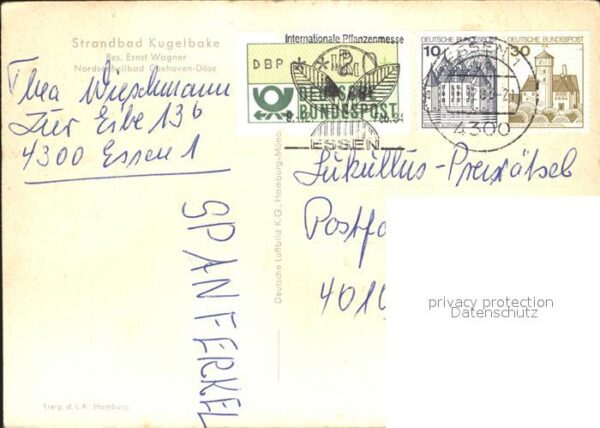 Strandbad Kugelbake
Bes. Ernst Wagner
Nordseeheilbad Cuxhaven-Döse
Thea Wieschmann
Zur Eibe 13b
4300 Essen 1
SPANFERKEL
Freig. d. L.A. Hamburg
Deutsche Luftbild K.G., Hamburg-Münc.
Internationale Pflanzenmesse
DBP
DEUTSCHE
BUNDESPOST
ESSEN
DEUTSCHE BUNDESPOST
10
DEUTSCHE BUNDESPOST
30
ESSEN 1
4300
Lukullus-Preisrätsel
Postfa
4010
privacy protection
Datenschutz